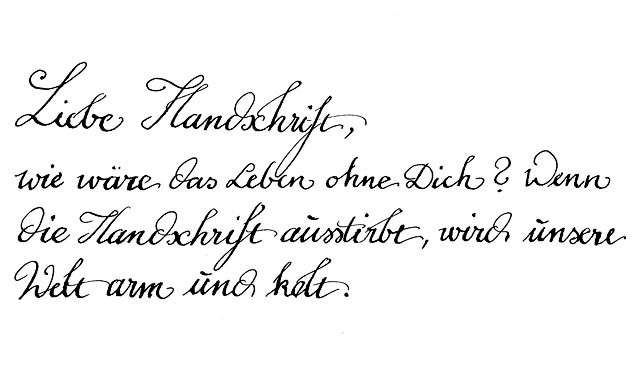 Liebe Handschrift,
wie wäre das Leben ohne Dich? Wenn
die Handschrift ausstirbt, wird unsere
Welt arm und kalt.